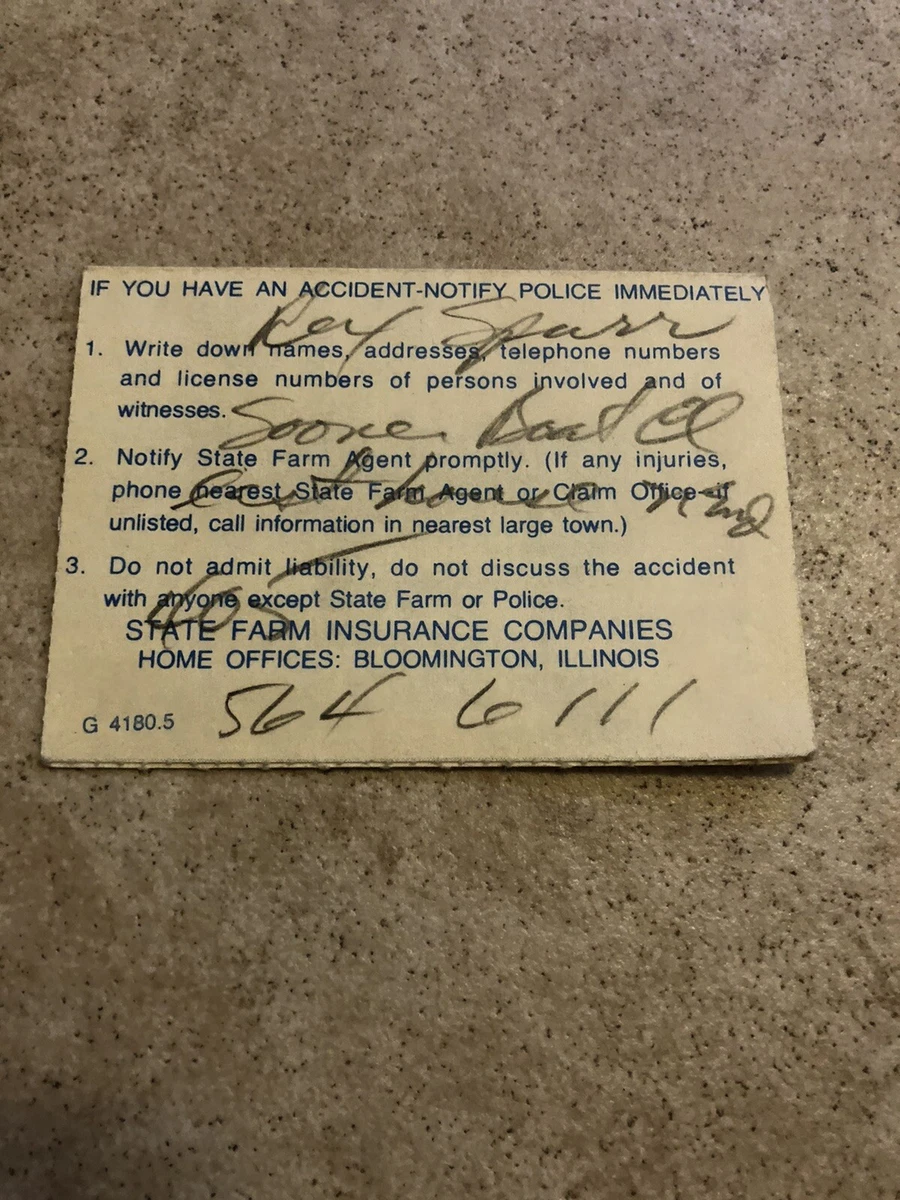 IF YOU HAVE AN ACCIDENT-NOTIFY POLICE IMMEDIATELY
Rex Sparr
1. Write down names, addresses, telephone numbers
and license numbers of persons involved and of
witnesses.
Sooner Boat Cl
2. Notify State Farm Agent promptly. (If any injuries,
phone nearest State Farm Agent or Claim Office-if
east house
unlisted, call information in nearest large town.)
3. Do not admit liability, do not discuss the accident
with anyone except State Farm or Police.
405
STATE FARM INSURANCE COMPANIES
HOME OFFICES: BLOOMINGTON, ILLINOIS
G 4180.5 564 6111